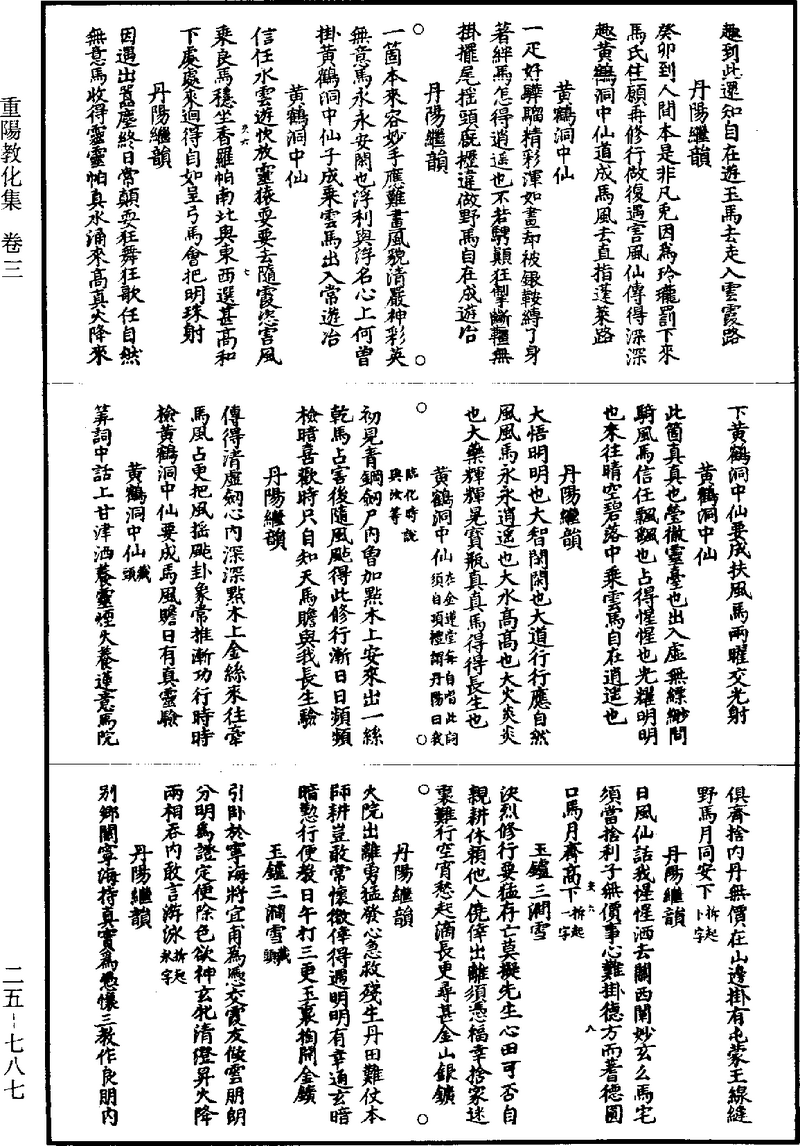 重陽教化集 卷三
二五-七八七
趣到此還知自在遊玉馬去走入雲霞路
丹陽繼韻
癸卯到人間本是非凡兎因爲玲瓏罰下來
馬氏住願再修行做復遇害風仙傳得深深
趣黃鶴洞中仙道成馬風去直指蓬萊路
黃鶴洞中仙
一疋好驊騮精彩渾如畫却被銀鞍縛了身
著絆馬怎得逍遥也不若騁顛狂掣斷韁無
掛擺尾摇頭厩櫪違做野馬自在成遊冶
丹陽繼韻
一箇本來容妙手應難畫風貌清嚴神彩英
無意馬永永安閑也浮利與浮名心上何曽
掛黃鶴洞中仙子成乗雲馬出入常遊冶
黃鶴洞中仙
信任水雲遊快放靈猿耍要去隨霞恣害風
乗良馬穩坐香羅帕南北與東西選甚高和
下處處來迴得自如呈弓馬會把明珠射
丹陽繼韻
因遇出囂塵終日常顛耍狂舞狂歌任自然
無意馬收得靈靈帕真水涌來高真火降來
下黃鶴洞中仙要成扶風馬兩曜交光射
黃鶴洞中仙
此箇真真也瑩徹靈臺也出入虚無縹緲間
騎風馬信任飄飄也占得惺惺也光耀明明
也來往晴空碧落中乗雲馬自在逍遥也
丹陽繼韻
大悟明明也大智閑閑也大道行行應自然
風風馬永永逍遥也大水高高也大火炎炎
也大藥輝輝晃寳瓶真真馬得得長生也
黃鶴洞中仙 在金蓮堂每自當此詞須自頂禮謂丹陽曰我
臨化時說與汝等
初見青銅劒尸内曽加點木上安來出一絲
乾馬占害後隨風颭得此修行漸日日頻頻
檢暗喜歡時只自知天馬贍與我長生驗
丹陽繼韻
傳得清虚劒心内深深點木上金絲來往牽
馬風占更把風摇颭卦象常推漸功行時時
檢黃鶴洞中仙要成馬風贍日有真靈驗
黃鶴洞中仙 藏頭
筭詞中話上甘津洒養靈煙火養蓮意馬院
俱齊捨内丹無價在山邊掛有屯蒙王線縫
野馬月同安下 拆起卜字
丹陽繼韻
日風仙話我惺惺洒去關西闡妙玄么馬宅
須當捨利子無價事心難掛德方而著德圓
口馬月齊高下 拆起一字
玉鑪三澗雪
決烈修行要猛存亡莫擬先生心田可否自
親耕休頼他人僥倖出離須憑福幸捨家迷
裏難行空宵愁起滴長更尋甚金山銀鑛
丹陽繼韻
火院出離勇猛發心急救殘生丹田難仗本
師耕豈敢常懷徼倖得遇明明有幸通玄暗
暗懃行便教日午打三更玉裏掏開金鑛
玉鑪三澗雪 藏頭
引卧於寧海將宜甫爲憑交霞友做雲朋朗
分明爲證定便除色欲神玄牝清澄昇火降
兩相吞内敢言游泳 拆起氷字
丹陽繼韻
别鄉關寧海持真實爲憑懷三教作良朋内